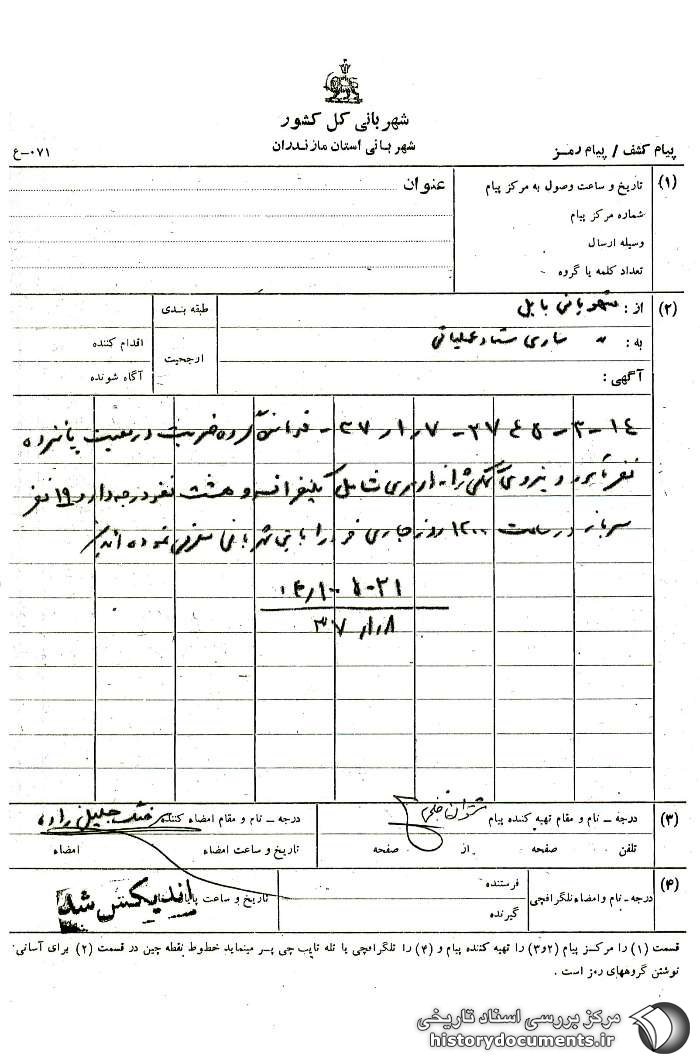 شهربانی کل کشور
شهربانی استان مازندران
پیام کشف / پیام رمز
۰۷۱-ع
(۱)
تاریخ و ساعت وصول به مرکز پیام
عنوان
شماره مرکز پیام
وسیله ارسال
تعداد کلمه یا گروه
(۲)
از : شهربانی بابل
طبقه بندی
به : ساری ستاد عملیاتی
اقدام کننده
ارجحیت
آگاه شونده
آگهی :
گروه ضربت در معیت پانزده
نفر و نیروی کمکی ژاندارمری شامل یکنفر افسر و هشت نفر درجه دار و ۱۹ نفر
سرباز در ساعت ۱۲۰۰ روز جاری خود را باین شهربانی معرفی نموده اند
۳۷٫۱٫۸
(۳)
درجه ـ نام و مقام تهیه کننده پیام
درجه ـ نام و مقام امضاء کننده جلیل زاده
تلفن صفحه از صفحه
تاریخ و ساعت امضاء امضاء
(۴)
درجه ـ نام و امضاء تلگرافچی
فرستنده
گیرنده
تاریخ و ساعت
اندیکس شد
قسمت (۱) را مرکز پیام (۲و۳) را تهیه کننده پیام و (۴) را تلگرافچی یا تله تایپ چی پر مینماید خطوط نقطه چین در قسمت (۲) برای آسانی
نوشتن گروههای رمز است .
مرکز بررسی اسناد تاریخی
historydocuments.ir